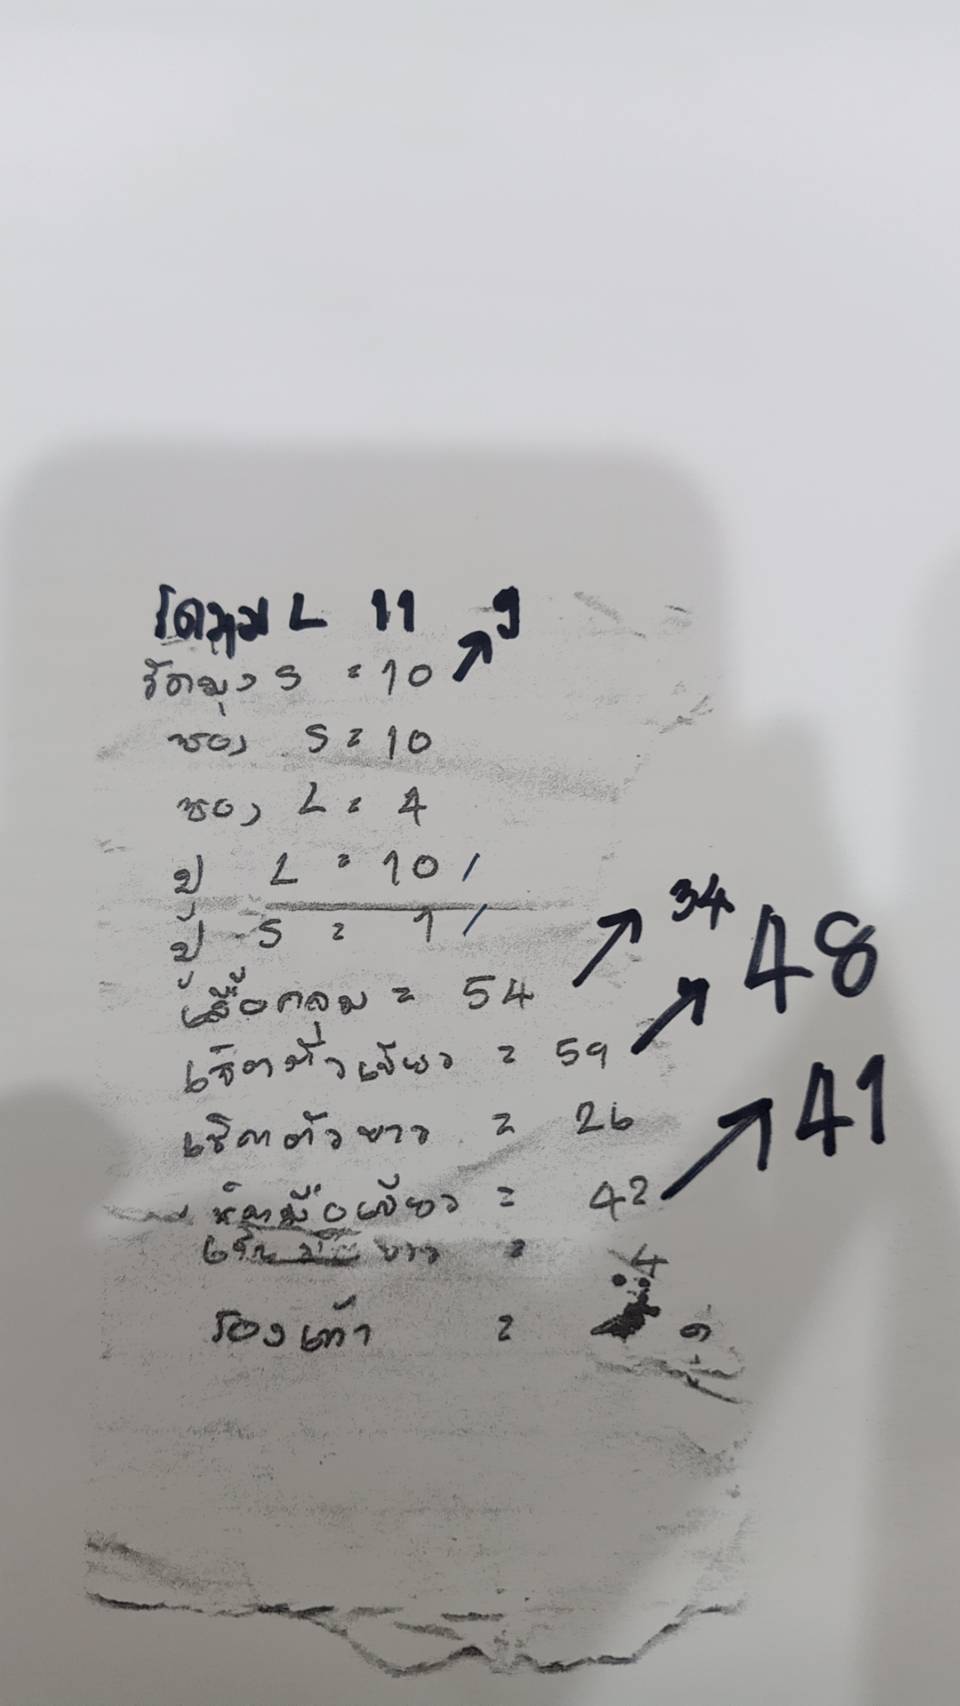 รัดมุม L 11 9
รัดมุง S = 10
ซอง S = 10
ซอง L = 4
ปู L = 10 /
ปู S = 1 /
เสื้อคลุม = 54 34
เช็ดตัวเขียว = 59 48
เช็ดตัวขาว = 26
เช็ดมือเขียว = 42 41
ขาว = 4
รองเท้า =